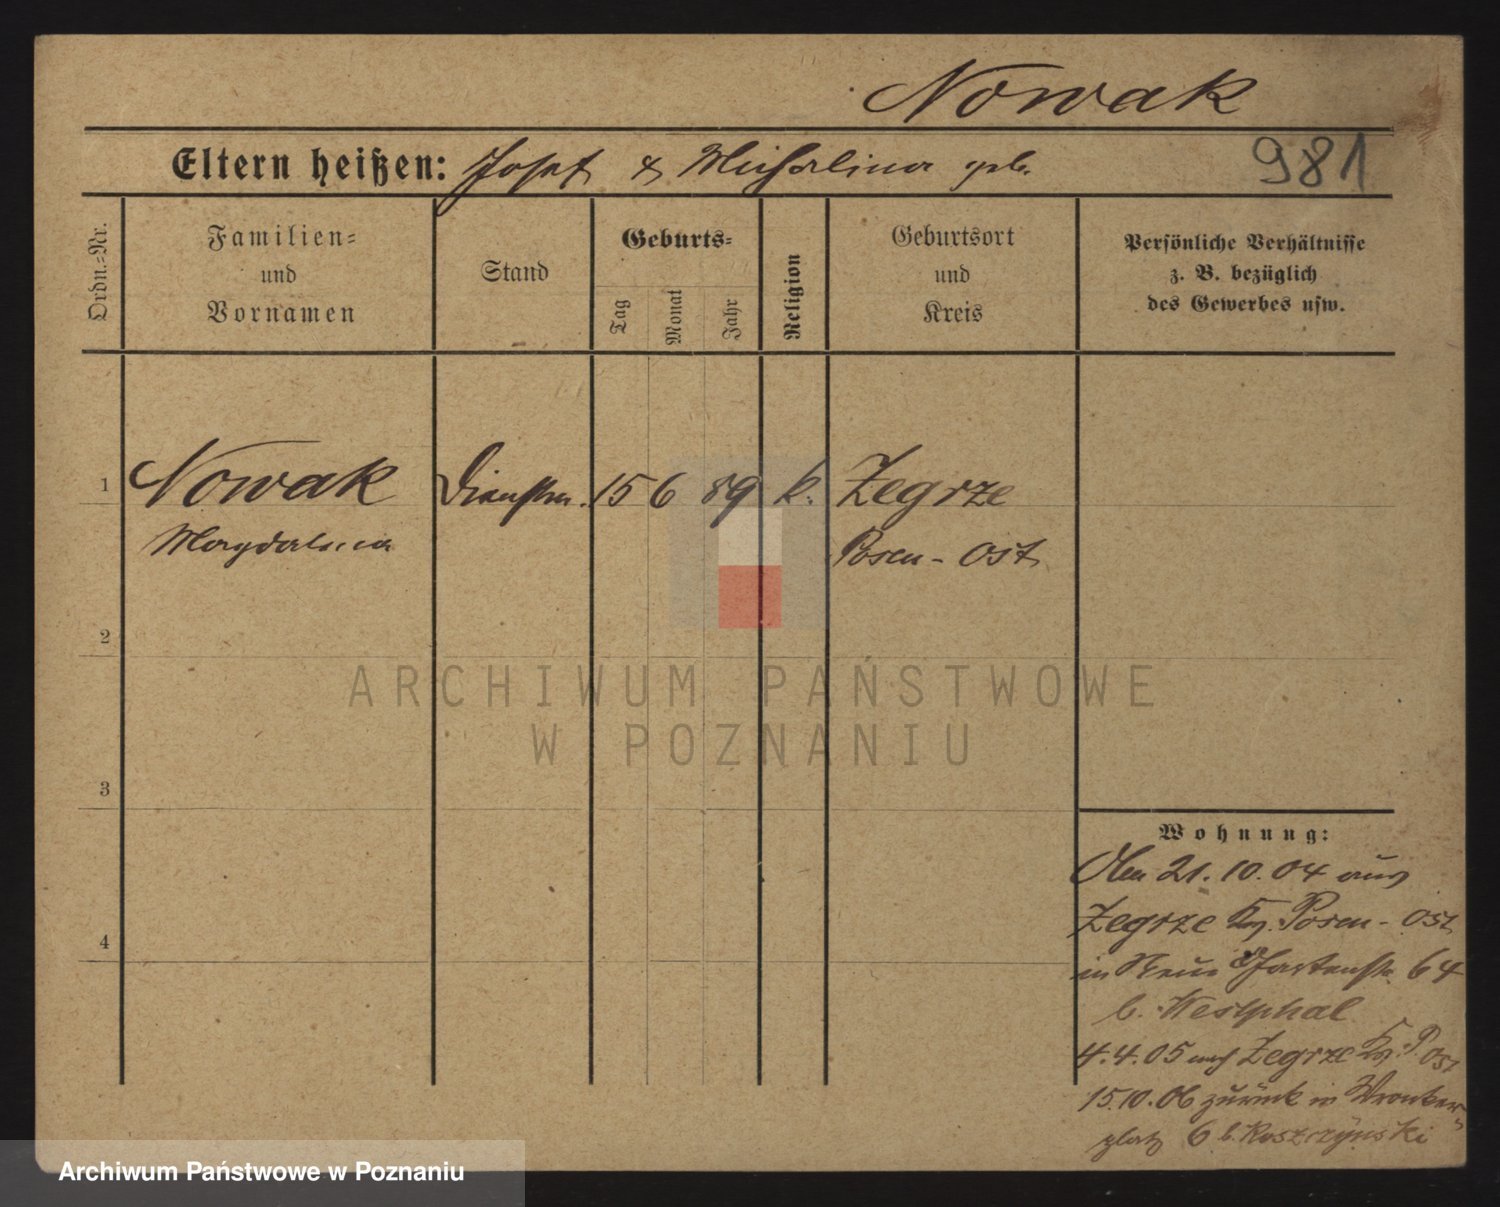 Nowak
Eltern heißen: Josef & Michalina geb.
981
Ordn.=Nr.
Familien=
und
Vornamen
Stand
Geburts=
Tag
Monat
Jahr
Religion
Geburtsort
und
Kreis
Persönliche Verhältnisse
z. B. bezüglich
des Gewerbes usw.
1 Nowak Dienstm. 15 6 89 k. Zegrze
Magdalena Posen-Ost
2
3
4
Wohnung:
21.10.04 aus
Zegrze Kr. Posen-Ost
in Neue Gartenstr. 64
b. Westphal
4.4.05 nach Zegrze Kr. P. Ost
15.10.06 zurück in Wronker-
platz 6 b. Roszczynski
ARCHIWUM PAŃSTWOWE
W POZNANIU
Archiwum Państwowe w Poznaniu